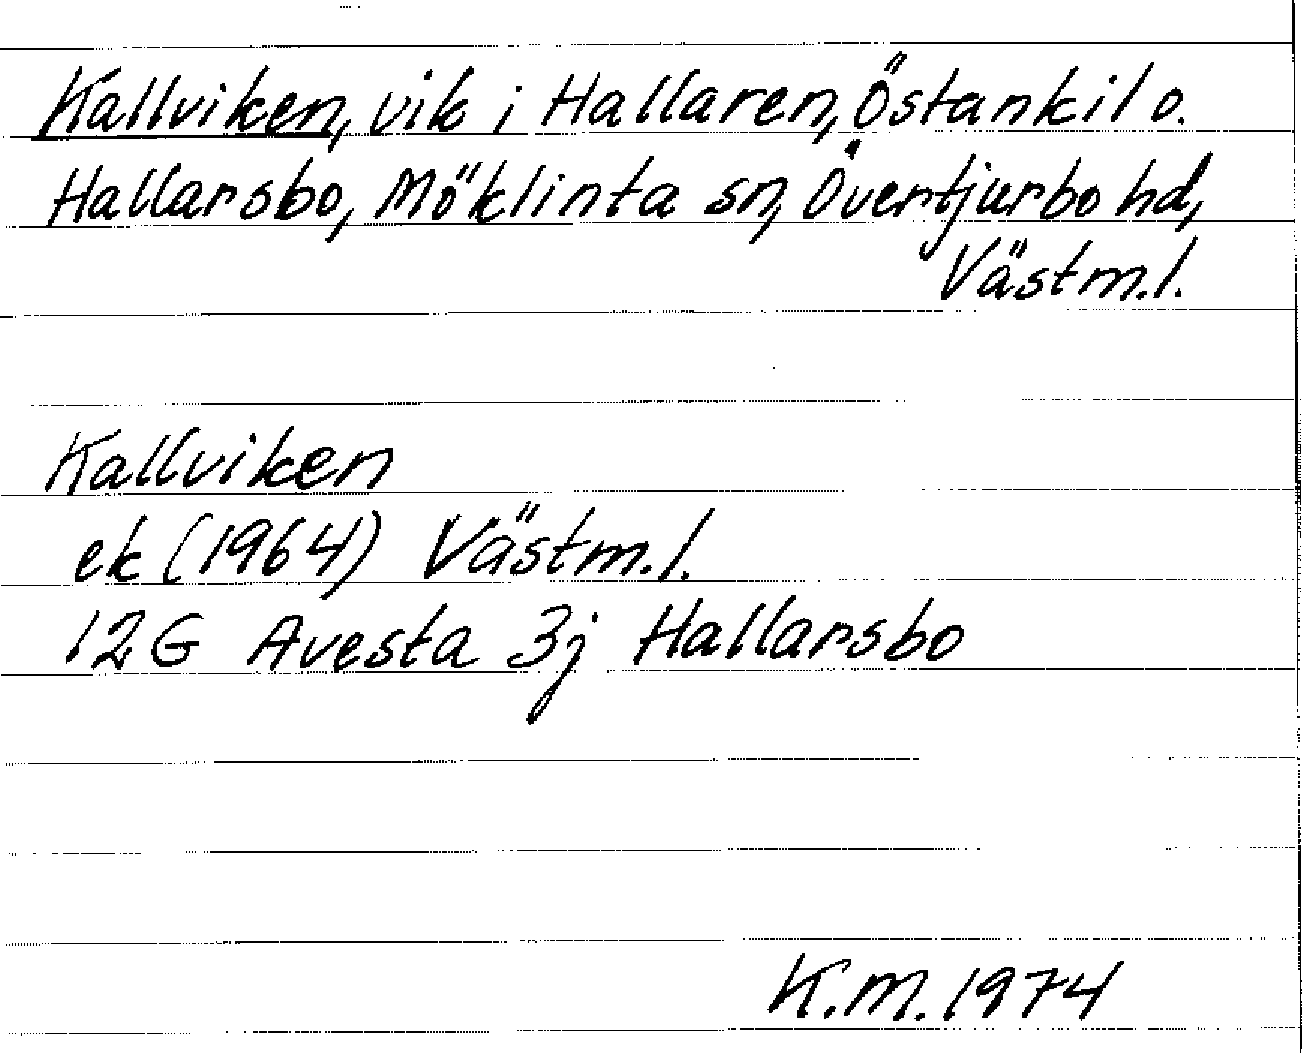 Kallviken, vik i Hallaren, Östankil o.
Hallarsbo, Möklinta sn, Övertjurbo hd,
Västm.l.
Kallviken
ek (1964) Västm.l.
12G Avesta 3j Hallarsbo
K.M. 1974